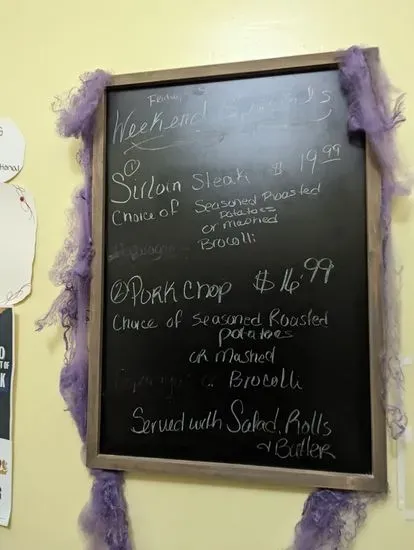 Friday
Weekend
① Sirloin Steak $ 19.99
Choice of Seasoned Roasted
Potatoes
or mashed
Brocolli
② Pork Chop $16.99
Choice of Seasoned Roasted
potatoes
or Mashed
Brocolli
Served with Salad, Rolls
& Butter